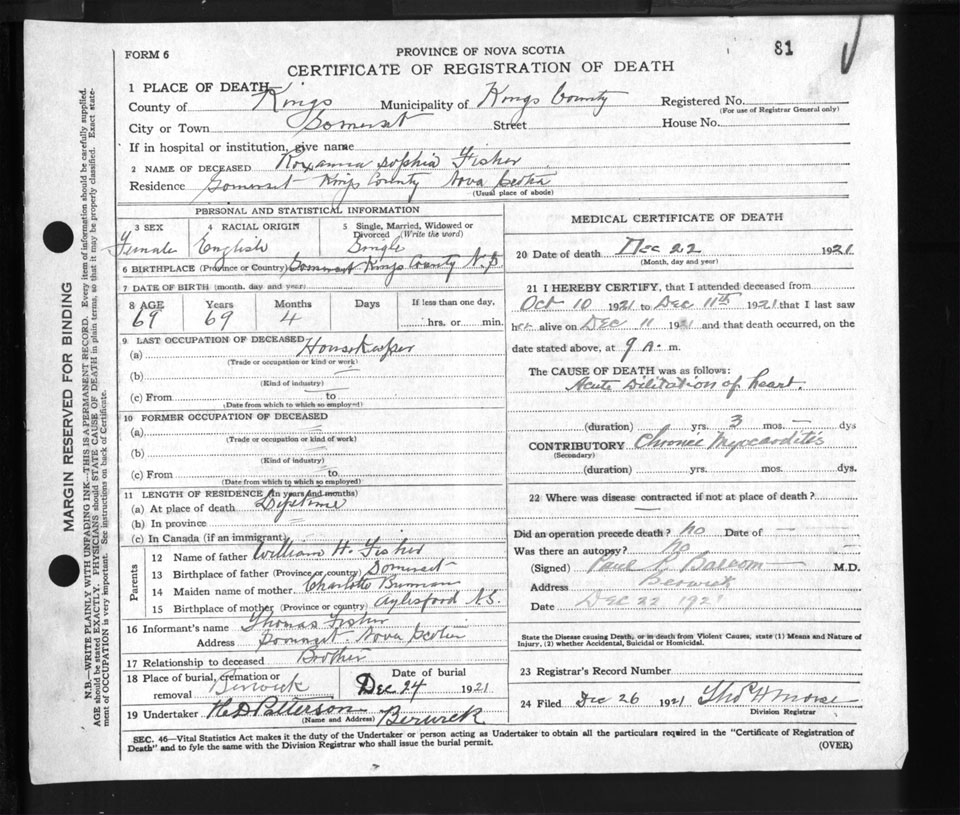 81
FORM 6
PROVINCE OF NOVA SCOTIA
CERTIFICATE OF REGISTRATION OF DEATH
1 PLACE OF DEATH
County of Kings Municipality of Kings County Registered No.
(For use of Registrar General only)
City or Town Somerset Street House No.
If in hospital or institution, give name
2 NAME OF DECEASED Roxanna Sophia Fisher
Residence Somerset Kings County Nova Scotia
(Usual place of abode)
PERSONAL AND STATISTICAL INFORMATION
3 SEX 4 RACIAL ORIGIN 5 Single, Married, Widowed or Divorced (Write the word)
Female English Single
6 BIRTHPLACE (Province or Country) Somerset Kings County N.S
7 DATE OF BIRTH (month, day and year)
8 AGE Years Months Days If less than one day,
69 69 4 hrs. or min.
9 LAST OCCUPATION OF DECEASED
(a) Housekeeper
(Trade or occupation or kind or work)
(b)
(Kind of industry)
(c) From to
(Date from which to which so employed)
10 FORMER OCCUPATION OF DECEASED
(a)
(Trade or occupation or kind of work)
(b)
(Kind of industry)
(c) From to
(Date from which to which so employed)
11 LENGTH OF RESIDENCE (in years and months)
(a) At place of death Lifetime
(b) In province
(c) In Canada (if an immigrant)
Parents
12 Name of father William H. Fisher
13 Birthplace of father (Province or country) Somerset
14 Maiden name of mother Charlotte
15 Birthplace of mother (Province or country) Aylesford N.S.
16 Informant's name Thomas Fisher
Address Somerset Nova Scotia
17 Relationship to deceased Brother
18 Place of burial, cremation or removal Berwick Date of burial Dec 24 1921
19 Undertaker H D Patterson Berwick
(Name and Address)
MEDICAL CERTIFICATE OF DEATH
20 Date of death Dec 22 1921
(Month, day and year)
21 I HEREBY CERTIFY, that I attended deceased from
Oct 10 1921 to Dec 11th 1921 that I last saw
her alive on Dec 11 1921 and that death occurred, on the
date stated above, at 9 A. m.
The CAUSE OF DEATH was as follows:
Acute Dilitation of heart.
(duration) yrs. 3 mos. — dys
CONTRIBUTORY Chronic Myocarditis
(Secondary)
(duration) yrs. mos. dys.
22 Where was disease contracted if not at place of death?
—
Did an operation precede death? No Date of —
Was there an autopsy? No
(Signed) Paul Balcom M.D.
Address Berwick
Date Dec 22 1921
State the Disease causing Death, or in death from Violent Causes, state (1) Means and Nature of
Injury, (2) whether Accidental, Suicidal or Homicidal.
23 Registrar's Record Number
24 Filed Dec 26 1921 Thos H Morse
Division Registrar
SEC. 46—Vital Statistics Act makes it the duty of the Undertaker or person acting as Undertaker to obtain all the particulars required in the "Certificate of Registration of
Death" and to fyle the same with the Division Registrar who shall issue the burial permit.
(OVER)
MARGIN RESERVED FOR BINDING
N.B.—WRITE PLAINLY WITH UNFADING INK—THIS IS A PERMANENT RECORD. Every item of information should be carefully supplied.
AGE should be stated EXACTLY. PHYSICIANS should STATE CAUSE OF DEATH in plain terms, so that it may be properly classified. Exact state-
ment of OCCUPATION is very important. See instructions on back of Certificate.